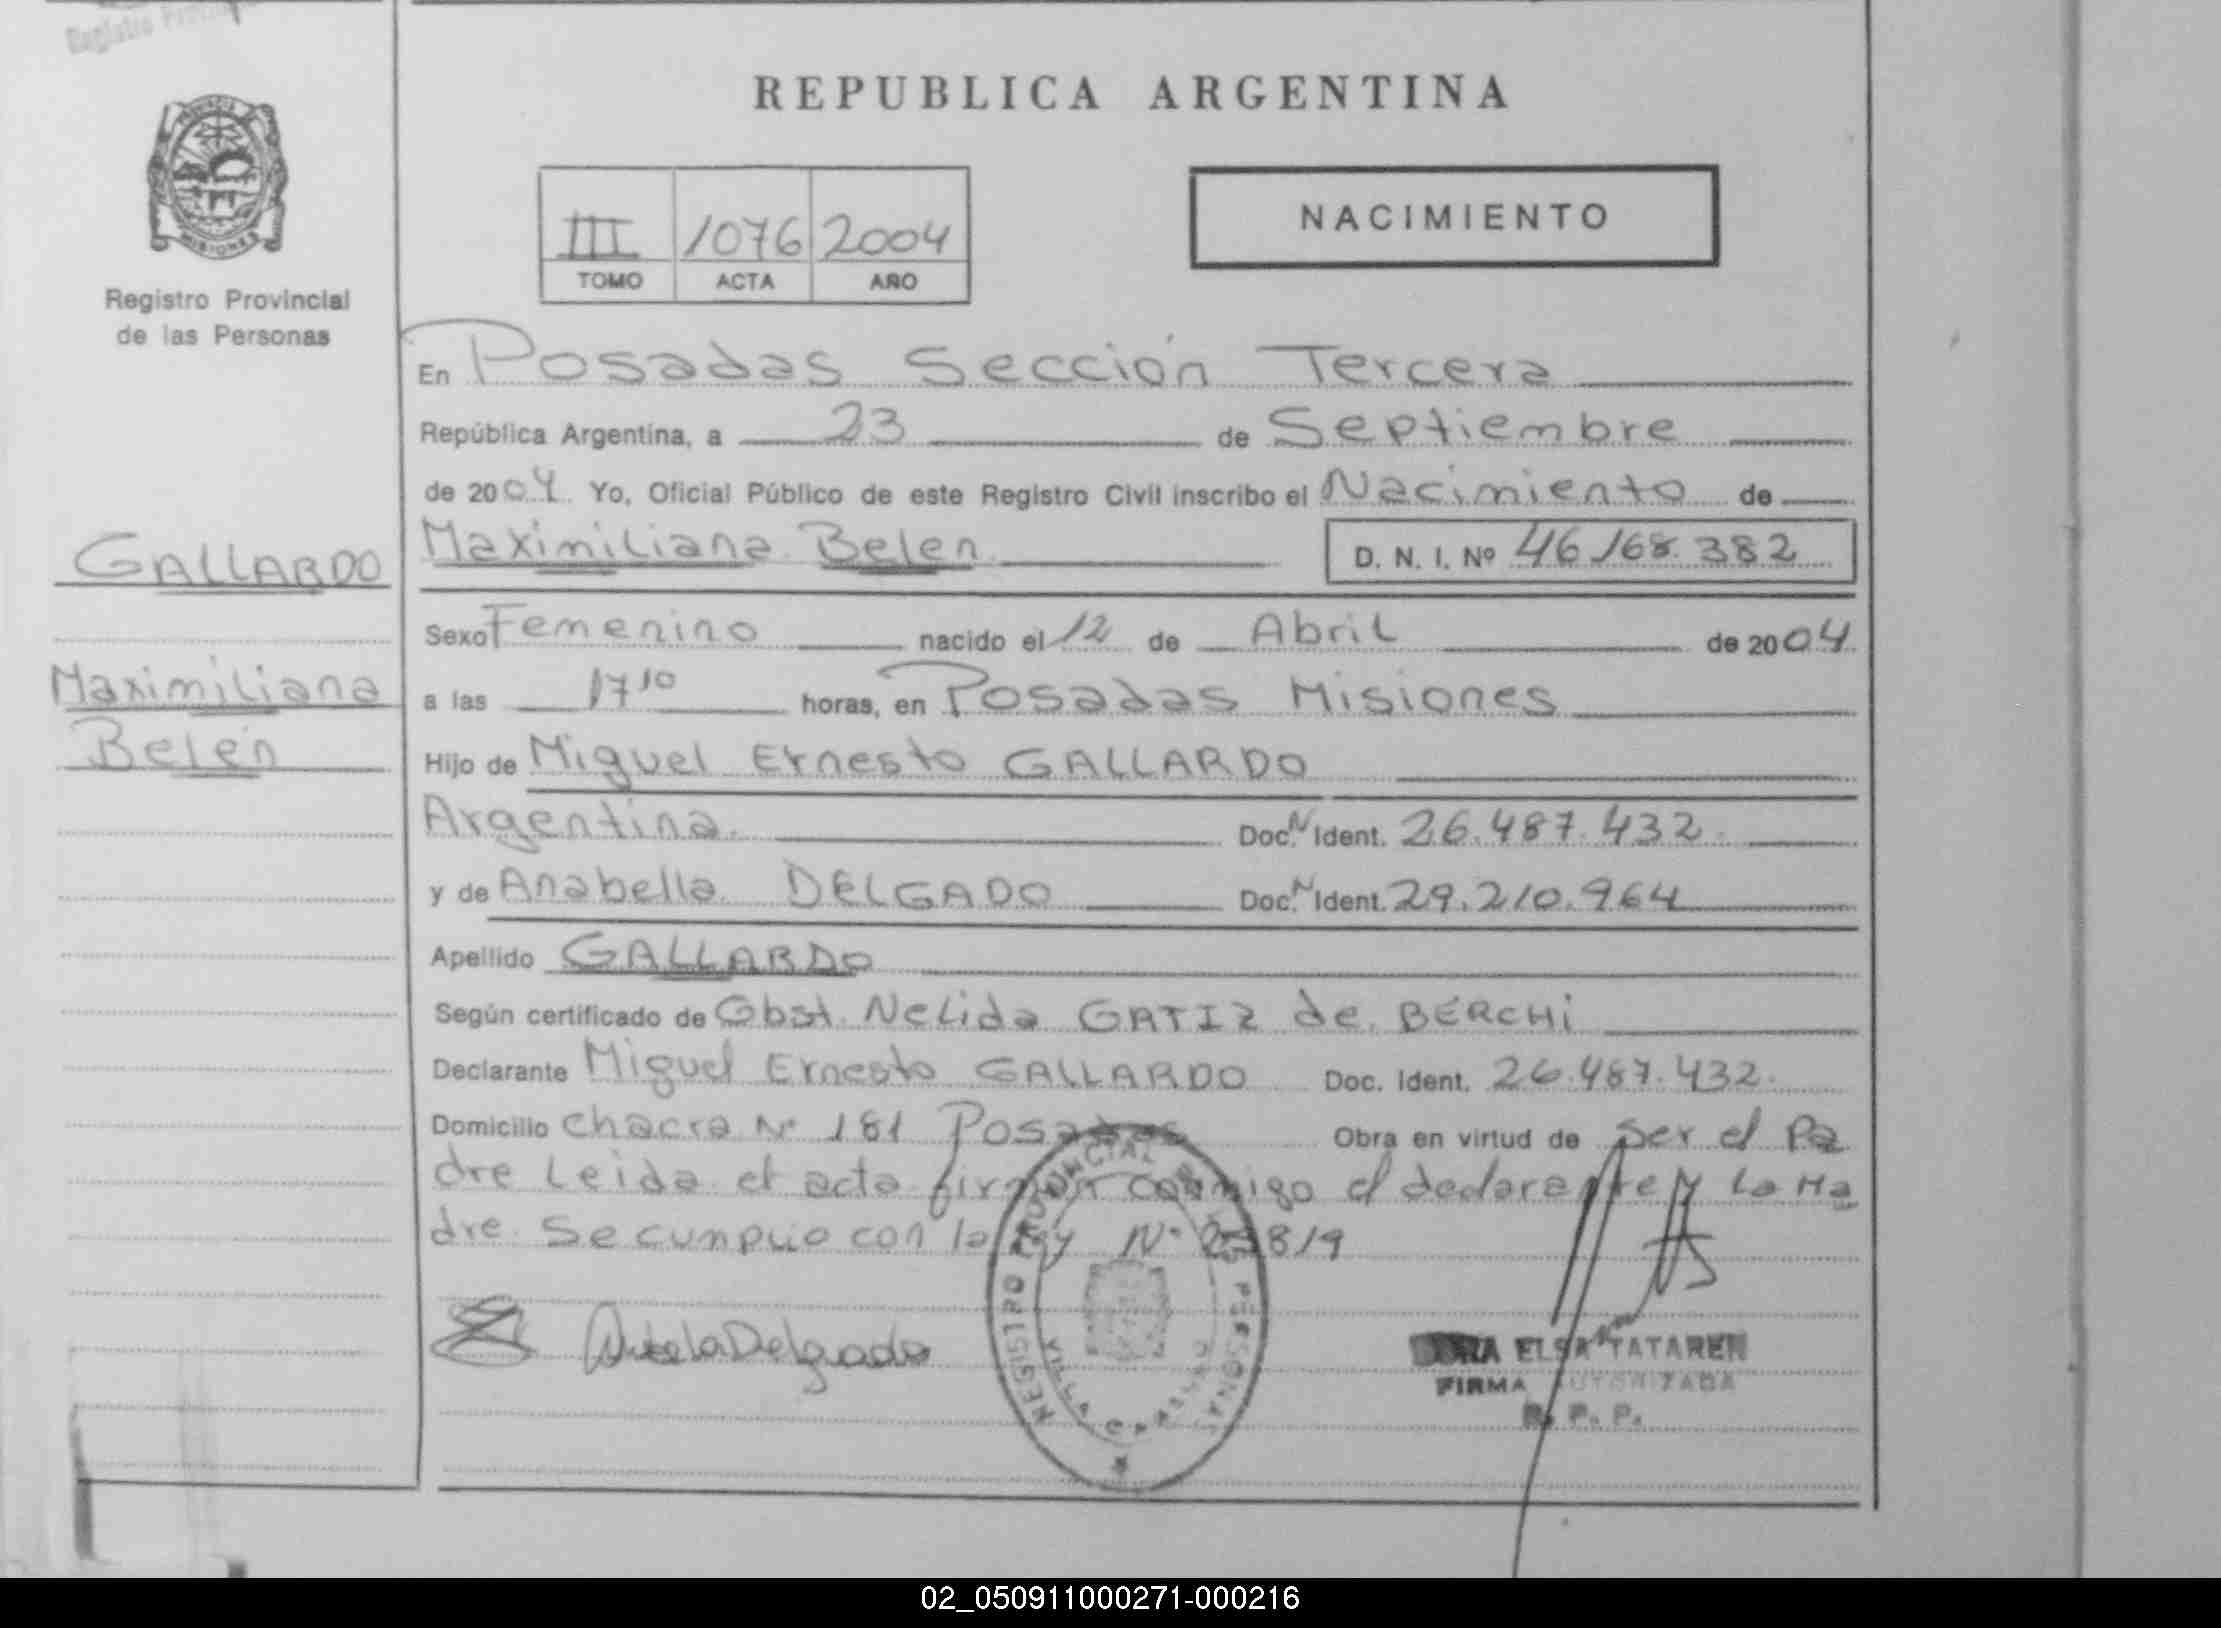 Registro Provincial
REPUBLICA ARGENTINA
PROVINCIA
MISIONES
III 1076 2004
TOMO ACTA AÑO
NACIMIENTO
Registro Provincial
de las Personas
En Posadas Sección Tercera
República Argentina, a 23 de Septiembre
de 2004 Yo, Oficial Público de este Registro Civil inscribo el Nacimiento de
GALLARDO
Maximiliana Belen D. N. I. Nº 46 168.382
Sexo Femenino nacido el 12 de Abril de 2004
Maximiliana
a las 17 10 horas, en Posadas Misiones
Belén
Hijo de Miguel Ernesto GALLARDO
Argentina Doc. N Ident. 26.487.432
y de Anabella DELGADO Doc. N Ident. 29.210.964
Apellido GALLARDO
Según certificado de Obst. Nelida GATIZ de BERCHi
Declarante Miguel Ernesto GALLARDO Doc. Ident. 26.487.432.
Domicilio chacra Nº 181 Posadas Obra en virtud de ser el Pa
dre Leida el acta firman conmigo el declarante y la Ma
dre Se cumplio con la Ley Nº 818/9
Delgado
REGISTRO PROVINCIAL DE LAS PERSONAS
VILLA CABELLO
ELSA TATAREN
FIRMA AUTORIZADA
R. P. P.
02_050911000271-000216